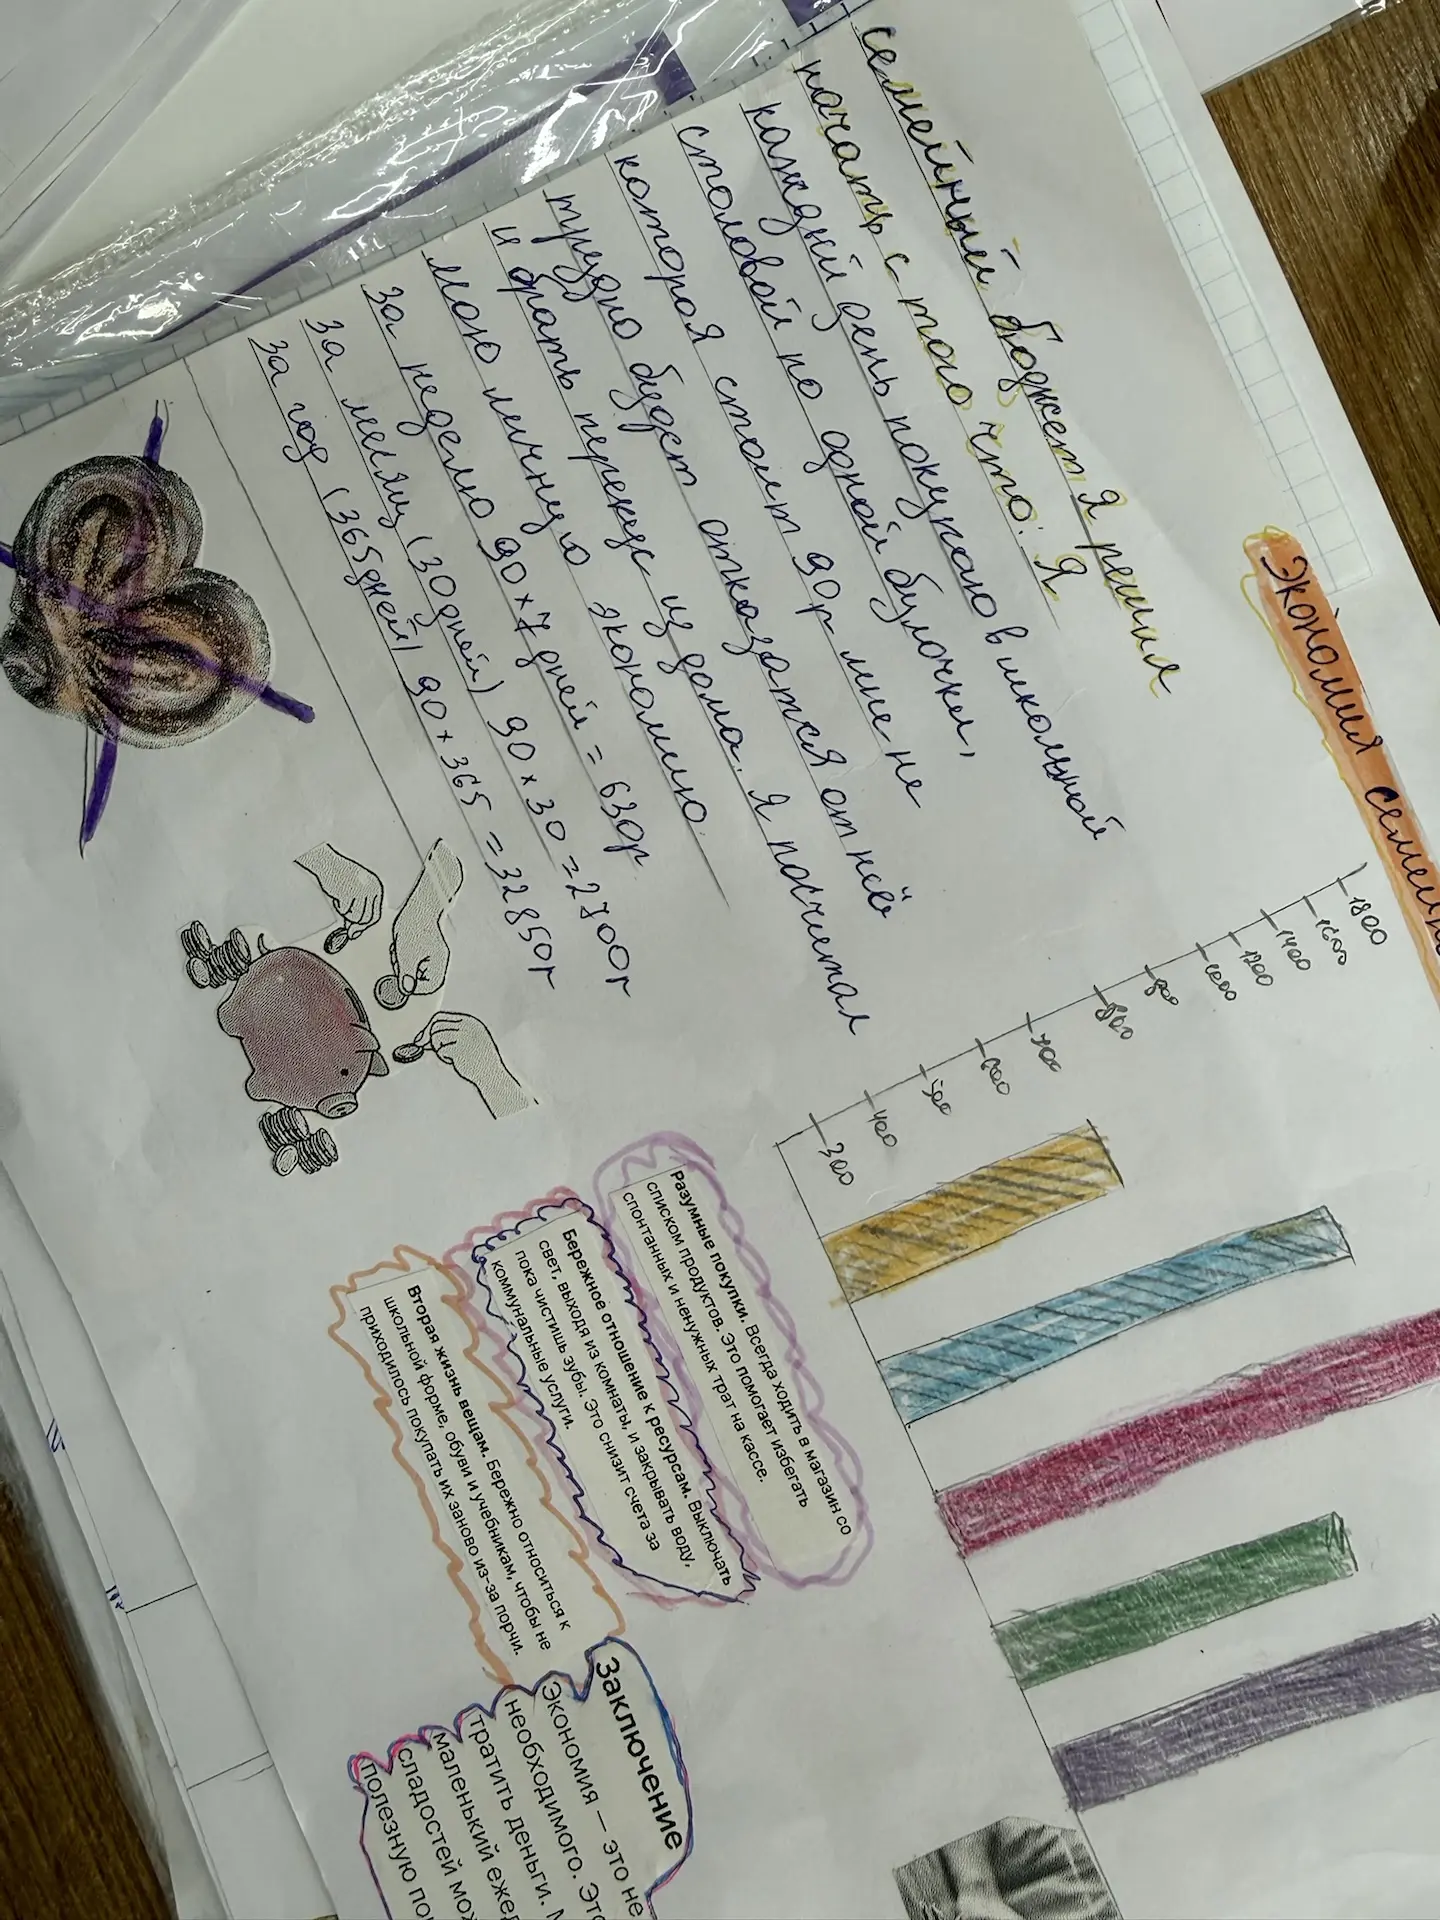 Экономия семейн
семейный бюджет я решил
начать с того что: Я
каждый день покупаю в школьной
столовой по одной булочки,
которая стоит 90р мне не
трудно будет отказатся от неё
и брать перекус из дома. Я посчитал
мою личную экономию.
За неделю 90 × 7 дней = 630р
За месяц (30 дней) 90 × 30 = 2700р
За год (365 дней) 90 × 365 = 32850р
1800
1600
1400
1200
1000
900
800
700
600
500
400
300
Разумные покупки. Всегда ходить в магазин со
списком продуктов. Это помогает избегать
спонтанных и ненужных трат на кассе.
Бережное отношение к ресурсам. Выключать
свет, выходя из комнаты, и закрывать воду,
пока чистишь зубы. Это снизит счета за
коммунальные услуги.
Вторая жизнь вещам. Бережно относиться к
школьной форме, обуви и учебникам, чтобы не
приходилось покупать их заново из-за порчи.
Заключение
Экономия — это не
необходимого. Это
тратить деньги.
маленький ежед
сладостей мож
полезную